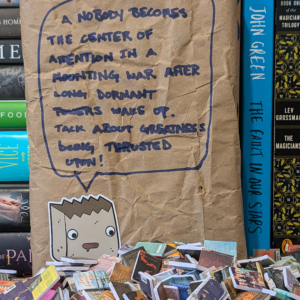 A NOBODY BECOMES
THE CENTER OF
ATTENTION IN A
MOUNTING WAR AFTER
LONG DORMANT
POWERS WAKE UP.
TALK ABOUT GREATNESS
BEING THRUSTED
UPON!
JOHN GREEN
THE FAULT IN OUR STARS
THE
MAGICIANS
TRILOGY
LEV
GROSSMAN
THE
MAGICIANS